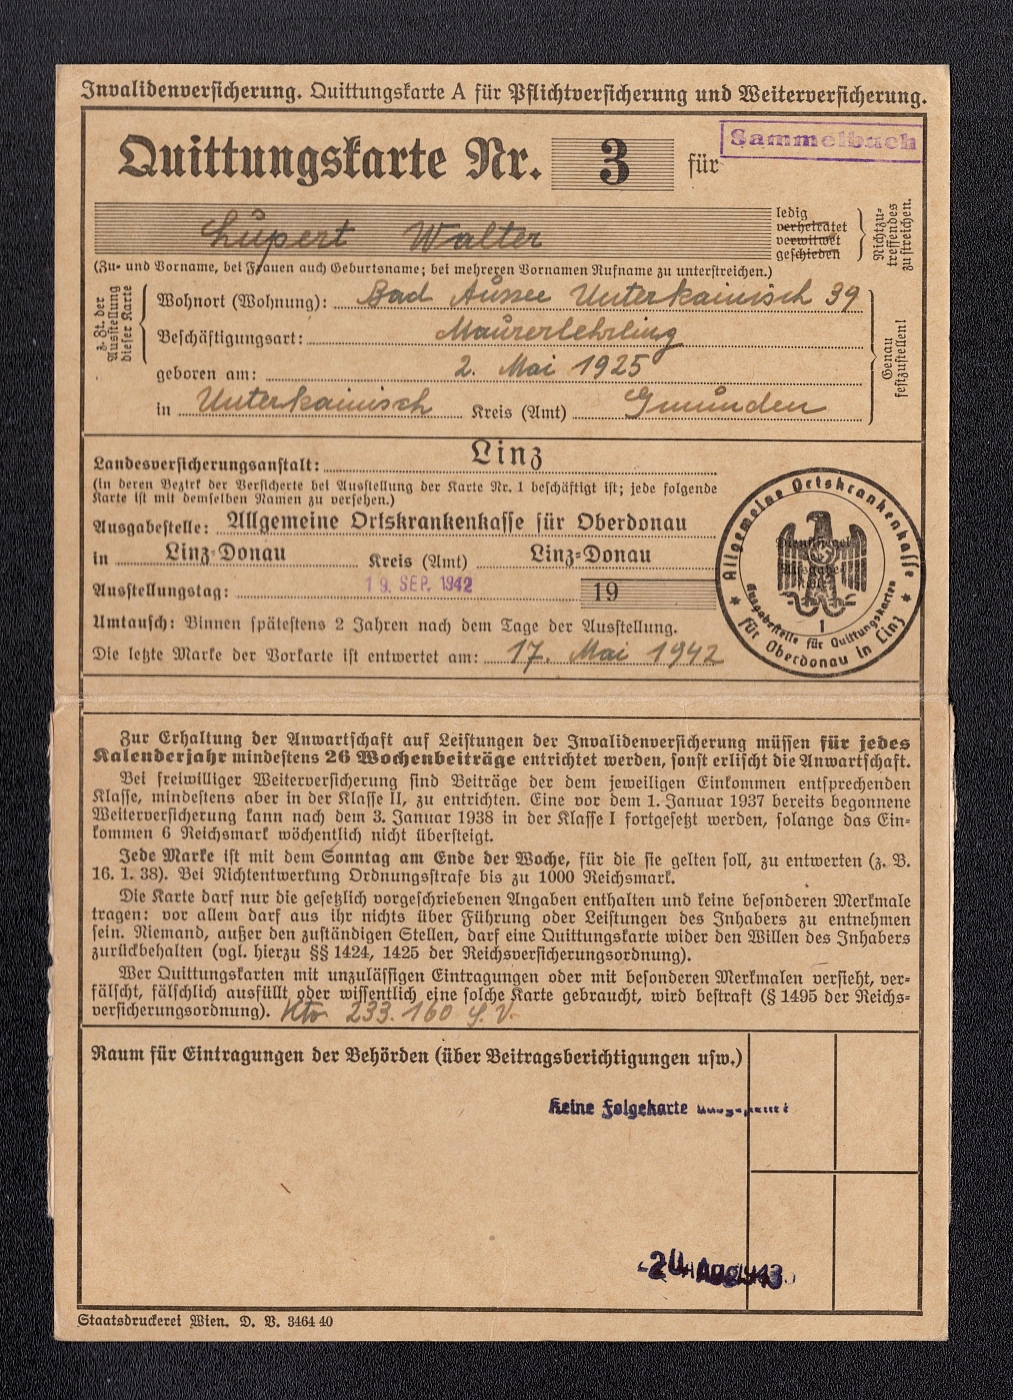 Invalidenversicherung. Quittungskarte A für Pflichtversicherung und Weiterversicherung.
Sammelbuch
Quittungskarte Nr. 3 für
Lupert Walter
ledig
verheiratet
verwitwet
geschieden
Nichtzu-
treffendes
zu streichen.
(Zu- und Vorname, bei Frauen auch Geburtsname; bei mehreren Vornamen Rufname zu unterstreichen.)
z. Zt. der
Ausstellung
dieser Karte
Wohnort (Wohnung): Bad Aussee Unterkainisch 39
Beschäftigungsart: Maurerlehrling
geboren am: 2. Mai 1925
in Unterkainisch Kreis (Amt) Gmunden
Genau
festzustellen!
Landesversicherungsanstalt: Linz
(In deren Bezirk der Versicherte bei Ausstellung der Karte Nr. 1 beschäftigt ist; jede folgende
Karte ist mit demselben Namen zu versehen.)
Ausgabestelle: Allgemeine Ortskrankenkasse für Oberdonau
in Linz-Donau Kreis (Amt) Linz-Donau
Ausstellungstag: 19. SEP. 1942 19
Umtausch: Binnen spätestens 2 Jahren nach dem Tage der Ausstellung.
Die letzte Marke der Vorkarte ist entwertet am: 17. Mai 1942
Allgemeine Ortskrankenkasse
für Oberdonau in Linz
Ausgabestelle für Quittungskarten
1
Zur Erhaltung der Anwartschaft auf Leistungen der Invalidenversicherung müssen für jedes
Kalenderjahr mindestens 26 Wochenbeiträge entrichtet werden, sonst erlischt die Anwartschaft.
Bei freiwilliger Weiterversicherung sind Beiträge der dem jeweiligen Einkommen entsprechenden
Klasse, mindestens aber in der Klasse II, zu entrichten. Eine vor dem 1. Januar 1937 bereits begonnene
Weiterversicherung kann nach dem 3. Januar 1938 in der Klasse I fortgesetzt werden, solange das Ein-
kommen 6 Reichsmark wöchentlich nicht übersteigt.
Jede Marke ist mit dem Sonntag am Ende der Woche, für die sie gelten soll, zu entwerten (z. B.
16. 1. 38). Bei Nichtentwertung Ordnungsstrafe bis zu 1000 Reichsmark.
Die Karte darf nur die gesetzlich vorgeschriebenen Angaben enthalten und keine besonderen Merkmale
tragen: vor allem darf aus ihr nichts über Führung oder Leistungen des Inhabers zu entnehmen
sein. Niemand, außer den zuständigen Stellen, darf eine Quittungskarte wider den Willen des Inhabers
zurückbehalten (vgl. hierzu §§ 1424, 1425 der Reichsversicherungsordnung).
Wer Quittungskarten mit unzulässigen Eintragungen oder mit besonderen Merkmalen versieht, ver-
fälscht, fälschlich ausfüllt oder wissentlich eine solche Karte gebraucht, wird bestraft (§ 1495 der Reichs-
versicherungsordnung). Kto. 233.160
Raum für Eintragungen der Behörden (über Beitragsberichtigungen usw.)
Keine Folgekarte
Staatsdruckerei Wien. D. V. 3464 40